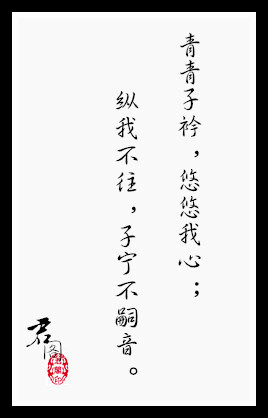 青青子衿，悠悠我心；
纵我不往，子宁不嗣音。
君
图